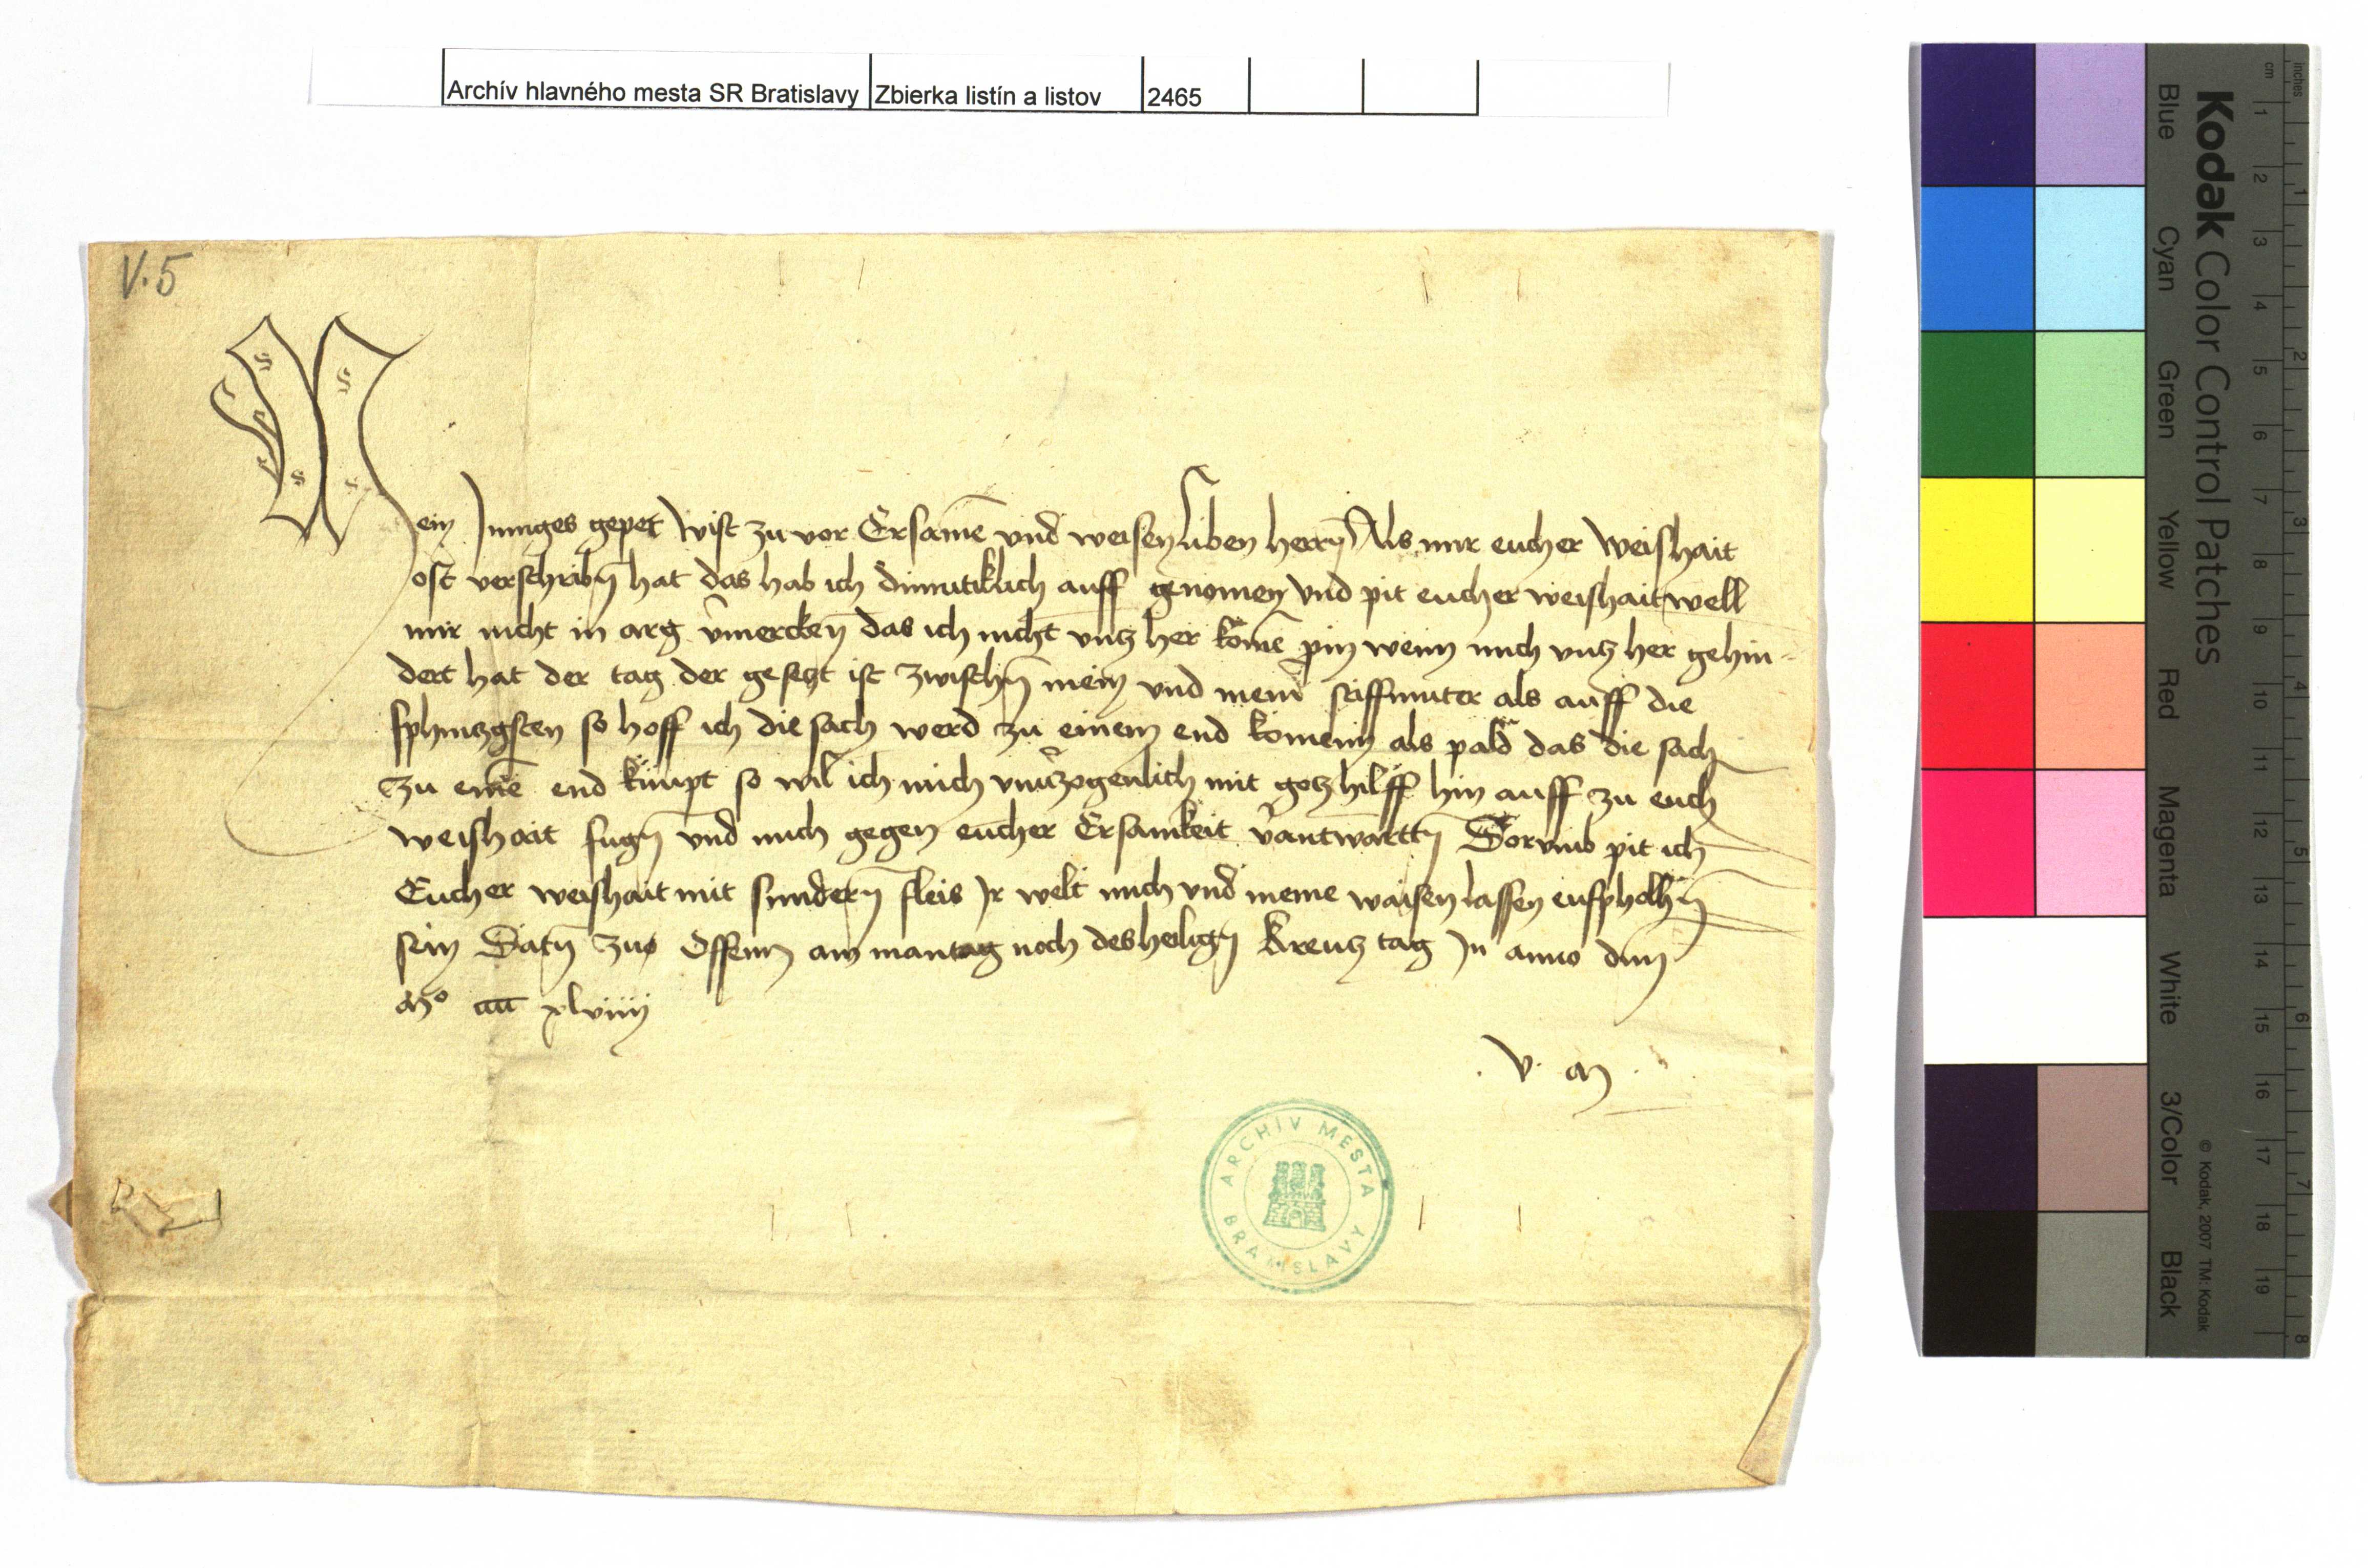 Archív hlavného mesta SR Bratislavy Zbierka listín a listov 2465
V. 5
Mein Inniges gepet wist zu vor Ersame̅ vnd weisen liben herrn̅ Als mir eucher Weishait
oft verschribn̅ hat das hab ich dimutiklich auff genomen vnd pit eucher weishait well
mir nicht in arg v̉mercken̅ das ich nicht vncz her kome̅ pin wenn mich vncz her gehin-
dert hat der tag der geseczt ist zwischn̅ mein vnd meinr̉ stiffmuter als auff die
fphinczgsten so hoff ich die sach werd zu einem end komenn als pald das die sach
zu eine̅ end kümpt so wil ich mich vnv̉zogenlich mit gocz hilff hin auff zu euch̉
weishait fugn̅ vnd mich gegen eucher Ersamkeit v̉antwarttn̅ Dorumb pit ich
Eucher weishait mit sundern̅ fleis Ir welt mich vnd meine waisen lassen enfpholhn̅
sein Datn̅ zu Offenn am mantag noch des heilign̅ Kreucz tag In anno dm̅
Mº cccc̅ xlviiij
. V. M .
ARCHÍV MESTA BRATISLAVY
Kodak Color Control Patches
Blue Cyan Green Yellow Red Magenta White 3/Color Black
© Kodak, 2007 TM: Kodak
inches 1 2 3 4 5 6 7 8
cm 1 2 3 4 5 6 7 8 9 10 11 12 13 14 15 16 17 18 19